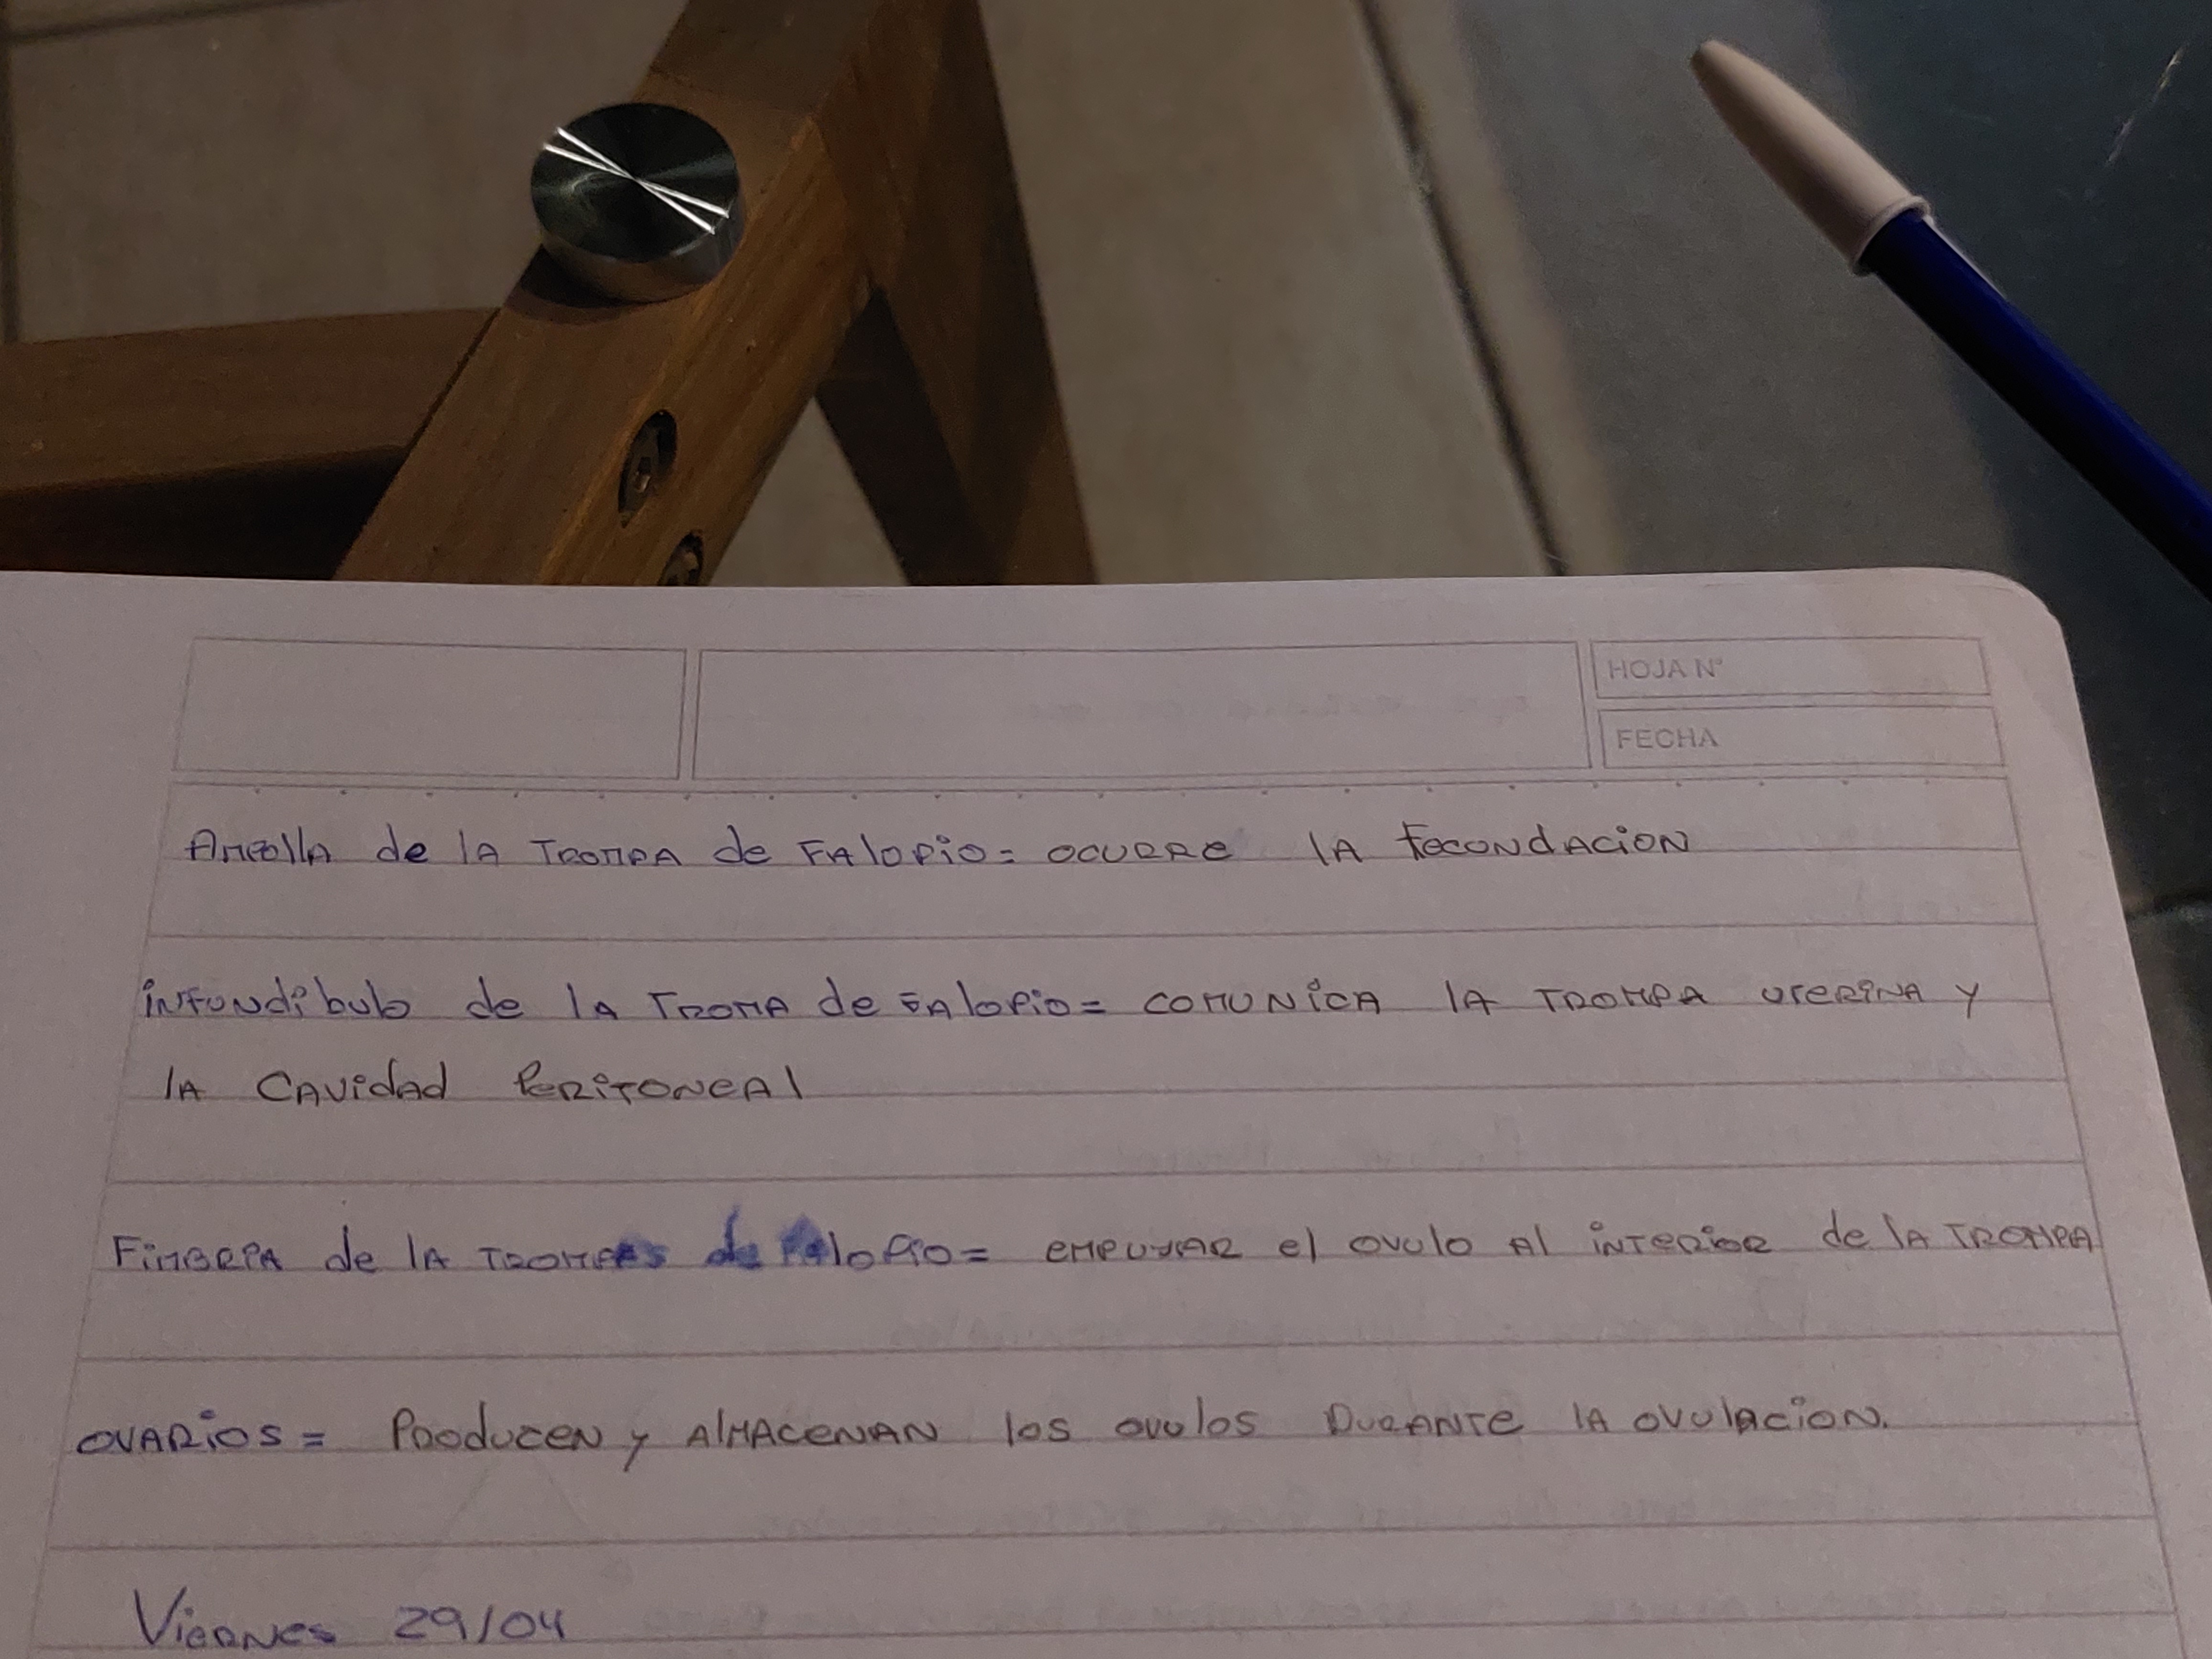 HOJA N°
FECHA
Ampolla de la Trompa de Falopio= ocurre la fecondacion
infundibulo de la Troma de Falopio= comunica la Trompa uterina y
la cavidad Peritoneal
Fimbria de la Trompas de Falopio= empujar el ovulo al interior de la Trompa
ovarios= Producen y almacenan los ovulos Durante la ovulacion.
Viernes 29/04